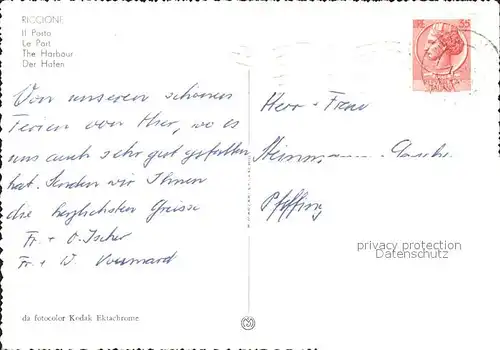 RICCIONE
Il Porto
Le Port
The Harbour
Der Hafen
Von unseren schönen
Ferien von Hier, wo es
uns auch sehr gut gefallen
hat. Senden wir Ihnen
die herzlichsten Grüsse
Fr. + O. Ischer
Fr. + W. Vuumard
da fotocolor Kodak Ektachrome
LIRE 35
Herr + Frau
Pfeffing
privacy protection
DALASI.com